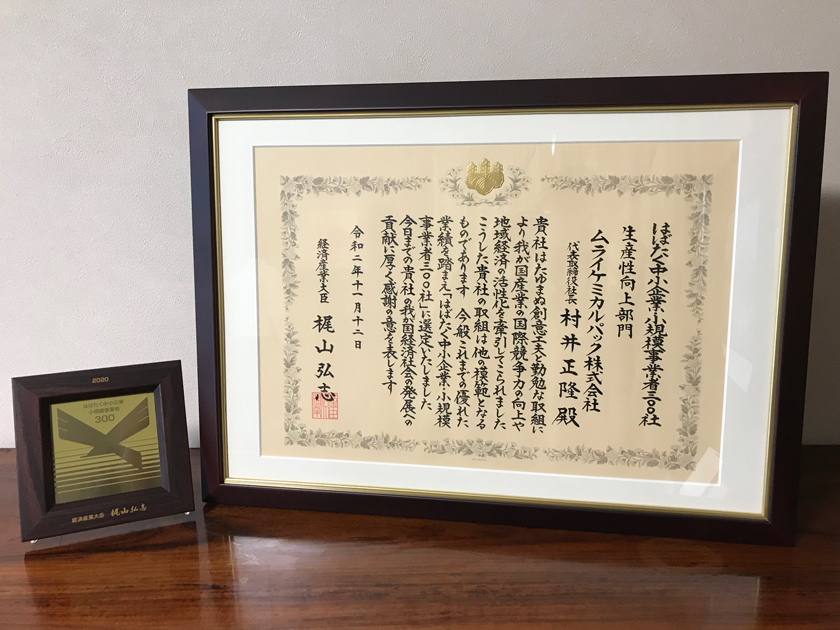 はばたく中小企業・小規模事業者三〇〇社
生産性向上部門
ムライケミカルパック株式会社
代表取締役社長 村井正隆殿
貴社はたゆまぬ創意工夫と勤勉な取組に
より我が国産業の国際競争力の向上や
地域経済の活性化を牽引してこられました
こうした貴社の取組は他の模範となる
ものであります 今般これまでの優れた
業績を踏まえ「はばたく中小企業・小規模
事業者三〇〇社」に選定いたしました
今日までの貴社の我が国経済社会の発展への
貢献に厚く感謝の意を表します
令和二年十一月十二日
経済産業大臣 梶山弘志
2020
はばたく中小企業
小規模事業者
300
経済産業大臣 梶山弘志